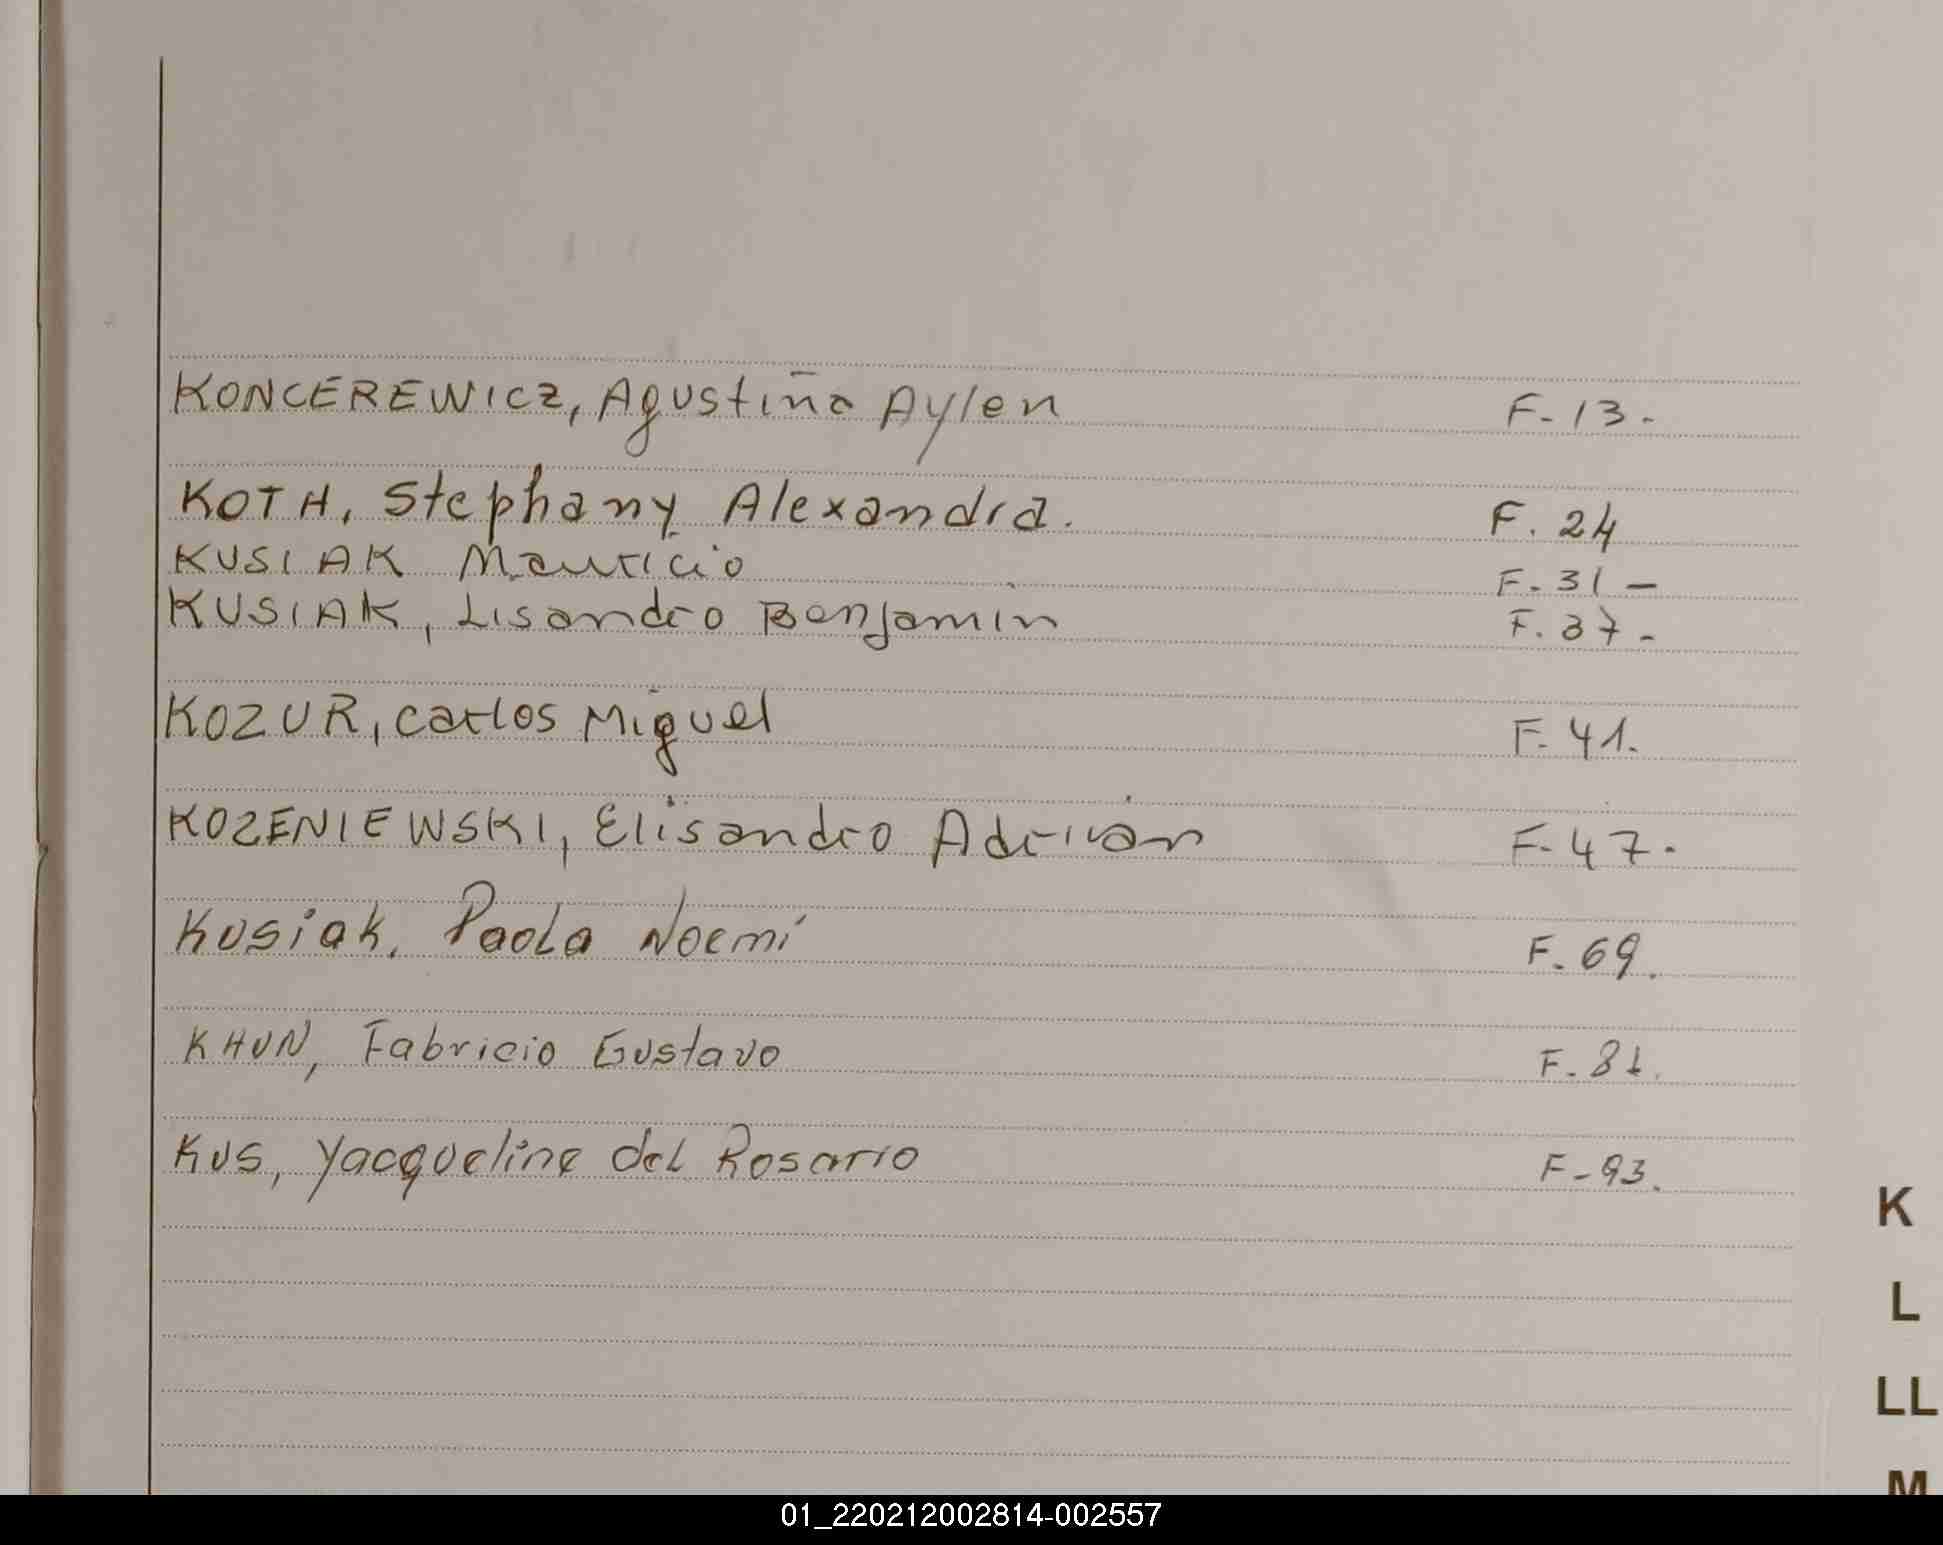 KONCEREWICZ, Agustina Aylen F-13-
KOTH, Stephany Alexandra. F. 24
KUSIAK Mauricio F-31-
KUSIAK, Lisandro Benjamin F. 37-
KOZUR, Carlos Miguel F-41.
KOZENIEWSKI, Elisandro Adrian F-47-
Kusiak, Paola Noemi F-69.
KHUN, Fabricio Gustavo F-81.
Kus, Yacqueline del Rosario F-93.
K
L
LL
M
01_220212002814-002557